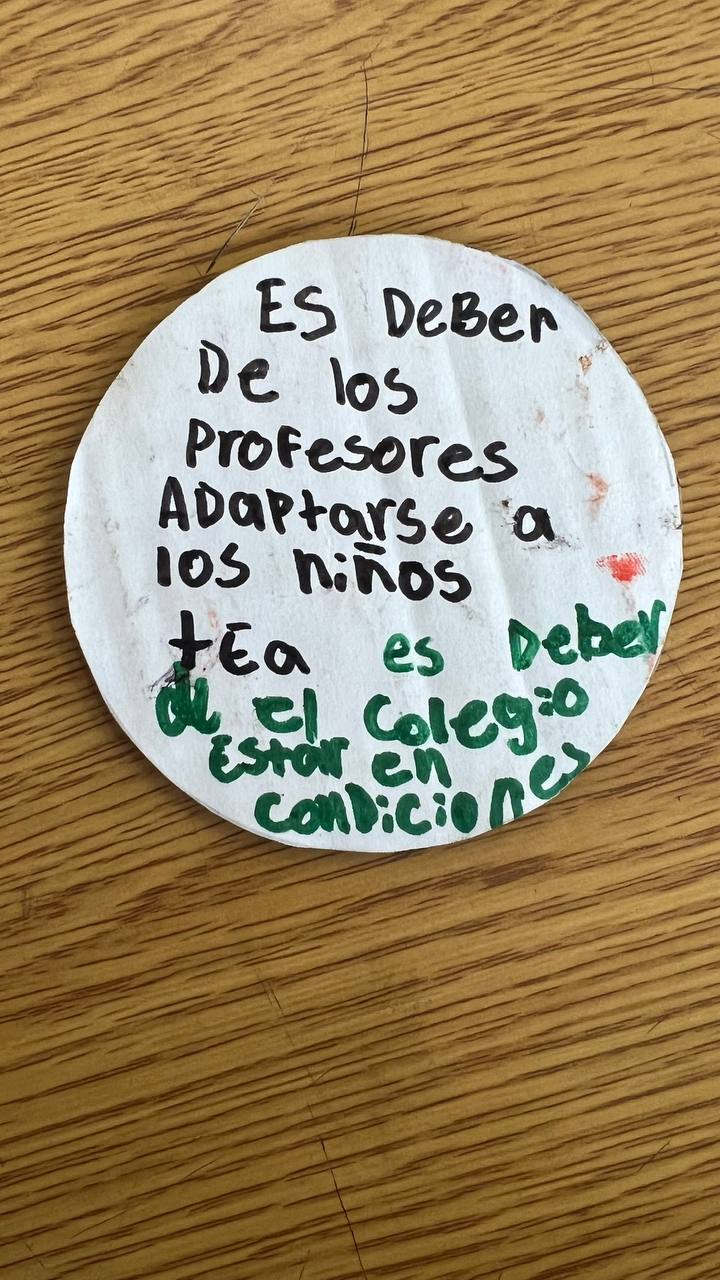 ES DeBer
De los
Profesores
ADaptarse a
los niños
tEa es Deber
de el colegio
Estar en
conDiciones